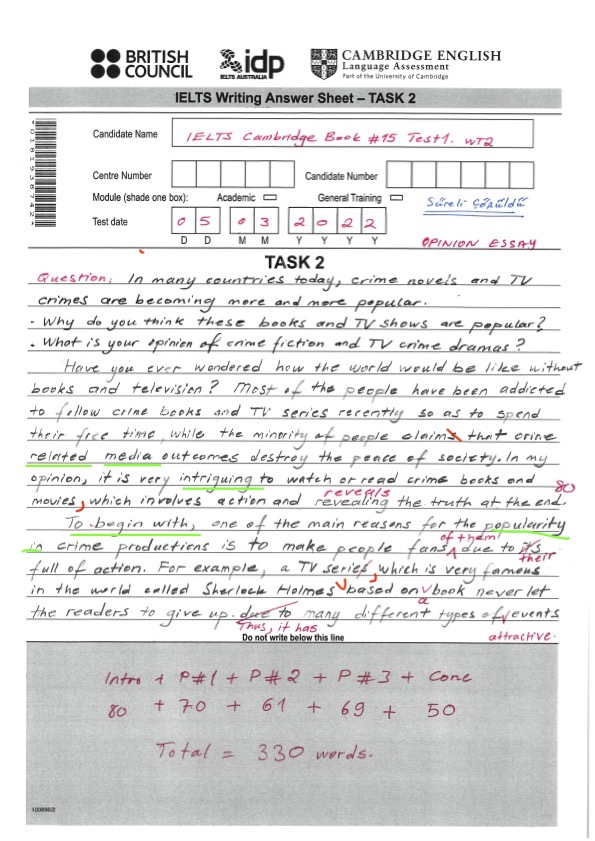 BRITISH COUNCIL
idp
IELTS AUSTRALIA
CAMBRIDGE ENGLISH
Language Assessment
Part of the University of Cambridge
IELTS Writing Answer Sheet – TASK 2
Candidate Name
IELTS Cambridge Book #15 Test1. WT2
Centre Number
Candidate Number
Module (shade one box): Academic General Training
Süreli Çözüldü
Test date 05 03 2022
D D M M Y Y Y Y
OPINION ESSAY
TASK 2
Question: In many countries today, crime novels and TV
crimes are becoming more and more popular.
- Why do you think these books and TV shows are popular?
- What is your opinion of crime fiction and TV crime dramas?
Have you ever wondered how the world would be like without
books and television? Most of the people have been addicted
to follow crime books and TV series recently so as to spend
their free time, while the minority of people claims that crime
related media outcomes destroy the peace of society. In my
opinion, it is very intriguing to watch or read crime books and
80
movies, which involves action and revealing the truth at the end.
reveals
To begin with, one of the main reasons for the popularity
of them
in crime productions is to make people fans due to its
their
full of action. For example, a TV series, which is very famous
in the world called Sherlock Holmes based on book never let
a
the readers to give up due to many different types of events
Thus, it has
attractive.
Do not write below this line
Intro + P#1 + P#2 + P#3 + Conc
80 + 70 + 61 + 69 + 50
Total = 330 words.
100895/2